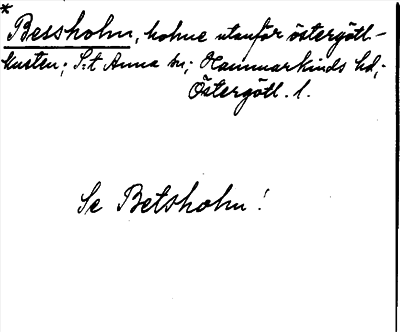 * Bessholm, holme utanför östergötl-
kusten; S:t Anna sn; Hammarkinds hd;
Östergötl. l.
Se Betsholm!